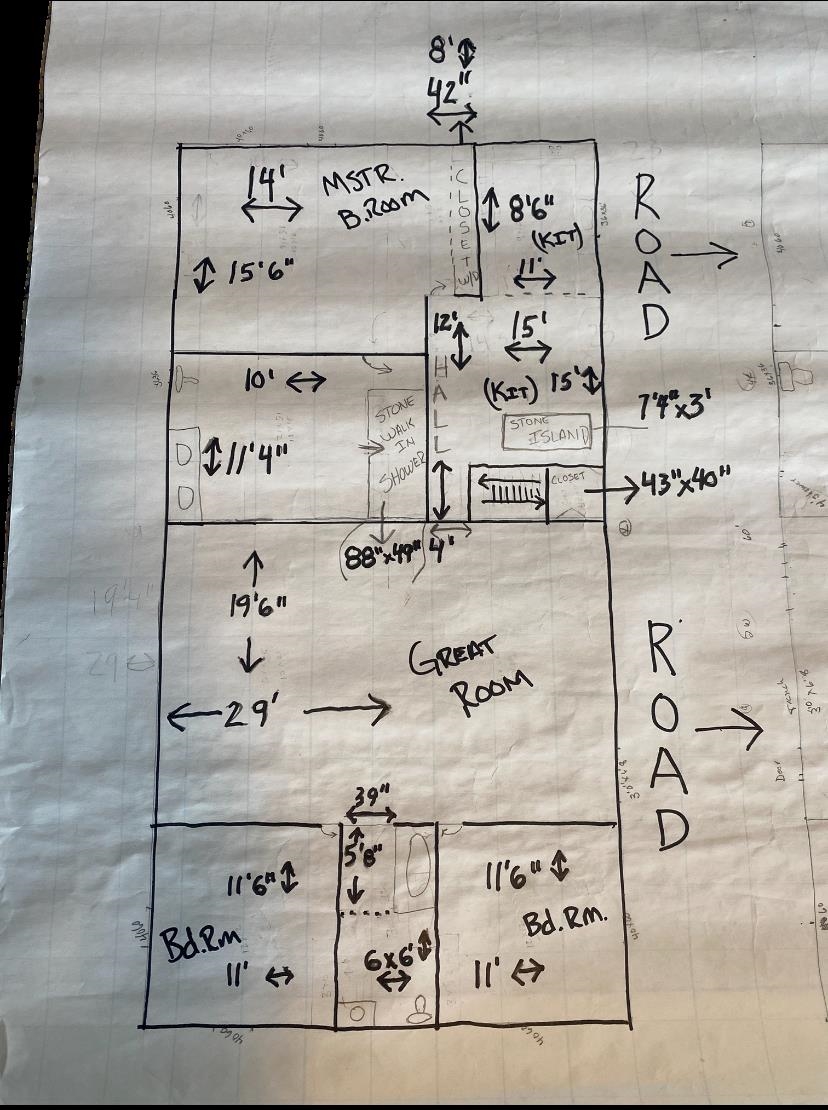 8'
42"
14'
MSTR.
B.ROOM
CLOSET
W/D
8'6"
(KIT)
11'
ROAD
15'6"
12'
15'
HALL
(KIT) 15'
10'
7'4"x3'
STONE
ISLAND
STONE
WALK
IN
SHOWER
11'4"
CLOSET
43"x40"
88"x49"
4'
19'6"
19'4"
29
GREAT
ROOM
29'
ROAD
39"
5'8"
11'6"
11'6"
Bd.Rm
Bd.Rm.
6x6'
11'
11'
4060
4060
4060
4060
Door